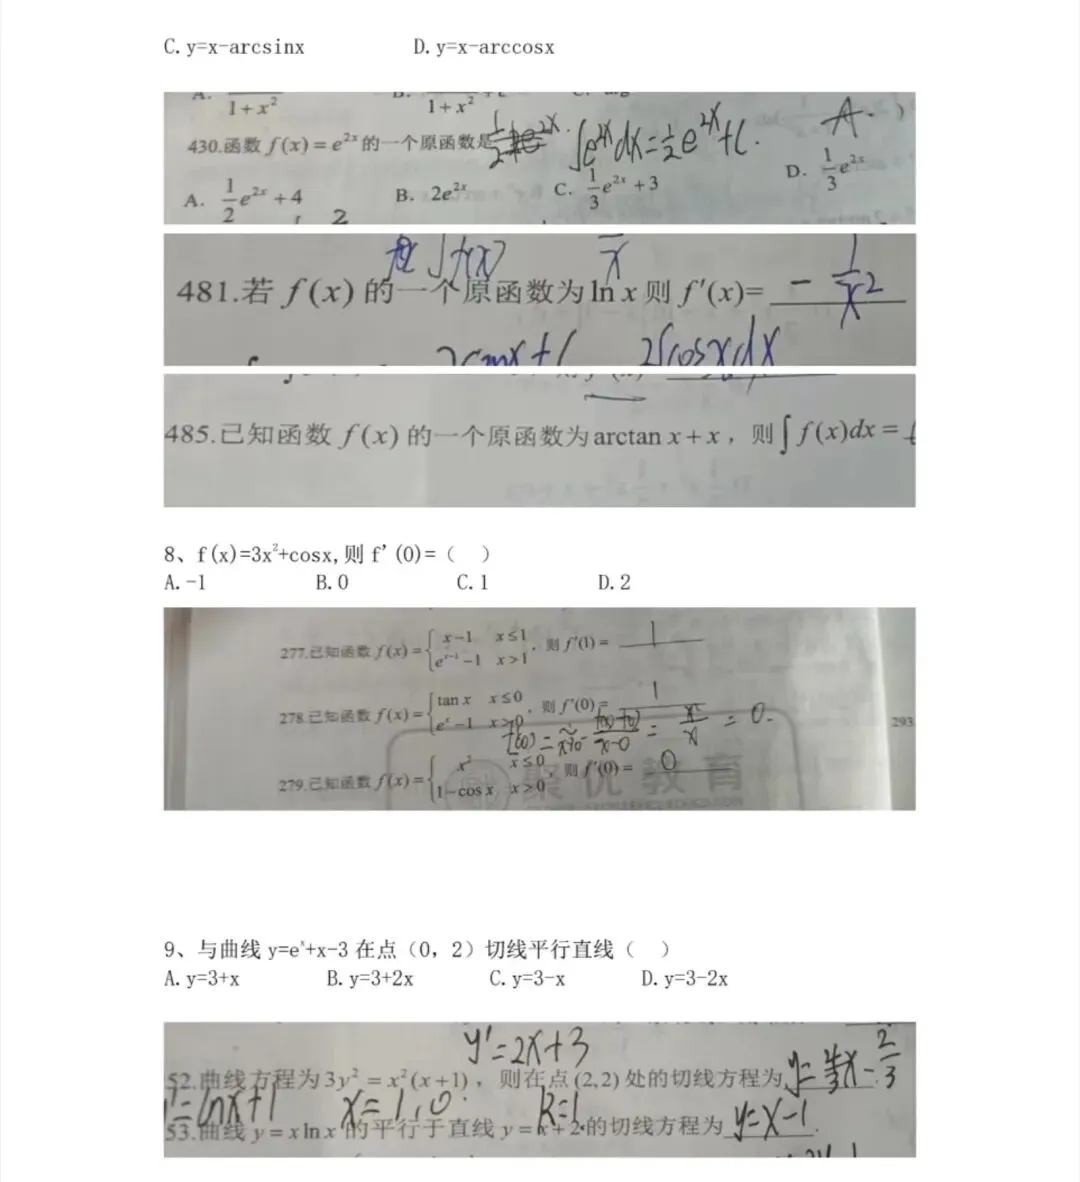 C. y=x-arcsinx D. y=x-arccosx
1+x² 1+x²
430.函数 f(x)=e^{2x} 的一个原函数是 ∫e^{2x}dx=½e^{2x}+C. A.
A. 1/2 e^{2x}+4 B. 2e^{2x} C. 1/3 e^{2x}+3 D. 1/3 e^{2x}
∫f(x) 1/x
481.若 f(x) 的一个原函数为 ln x 则 f'(x)= -1/x²
2∫cosxdx
485.已知函数 f(x) 的一个原函数为 arctan x+x，则∫f(x)dx=
8、f(x)=3x²+cosx,则 f'(0)=（ ）
A.-1 B.0 C.1 D.2
277.已知函数 f(x)={x-1 x≤1 e^{x-1}-1 x>1，则 f'(1)= 1
278.已知函数 f(x)={tan x x≤0 e^x-1 x>0，则 f'(0)= 1
= x²/x = 0.
293
279.已知函数 f(x)={x² x≤0 1-cos x x>0，则 f'(0)= 0
聚优教育
9、与曲线 y=e^x+x-3 在点（0，2）切线平行直线（ ）
A. y=3+x B. y=3+2x C. y=3-x D. y=3-2x
y'=2x+3
52.曲线方程为 3y²=x²(x+1)，则在点 (2,2) 处的切线方程为 y=4/3x-2/3
'=lnx+1 x=1,0. k=1
53.曲线 y=x ln x 的平行于直线 y=x+2 的切线方程为 y=x-1.